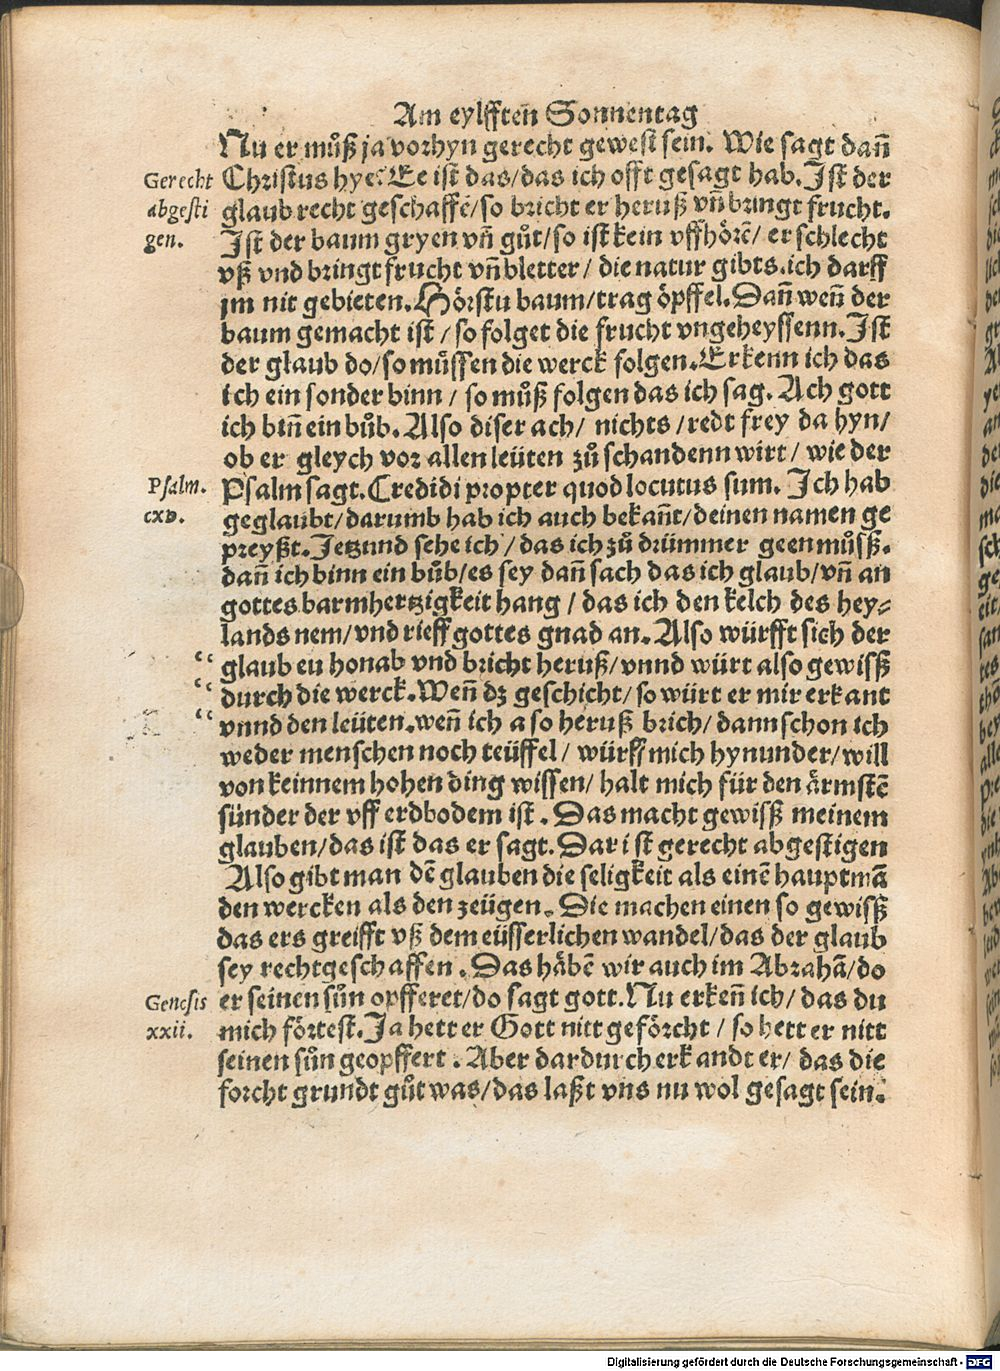 Am eylfften̄ Sonnentag
Nu er můß ja vorhyn gerecht gewest sein. Wie sagt dañ
Gerecht
abgesti
gen.
Christus hye? Ee ist das/das ich offt gesagt hab. Ist der
glaub recht geschaffē/so bricht er heruß vñ bringt frucht.
Ist der baum gryen vñ gůt/so ist kein vffhörē/ er schlecht
vß vnd bringt frucht vñ bletter/ die natur gibts. ich darff
jm nit gebieten. Hörstu baum/trag öpffel. Dañ weñ der
baum gemacht ist/so folget die frucht vngeheyssenn. Ist
der glaub do/so můssen die werck folgen. Erkenn ich das
ich ein sonder binn/ so můß folgen das ich sag. Ach gott
ich biñ ein bůb. Also diser ach/ nichts/redt frey da hyn/
ob er gleych vor allen leüten zů schandenn wirt/ wie der
Psalm.
cxv.
Psalm sagt. Credidi propter quod locutus sum. Ich hab
geglaubt/darumb hab ich auch bekañt/deinen namen ge
preyßt. Jetzund sehe ich/ das ich zů drümmer geen můsß.
dañ ich binn ein bůb/es sey dañ sach das ich glaub/vñ an
gottes barmhertzigkeit hang/ das ich den kelch des hey⸗
lands nem/vnd rieff gottes gnad an. Also würfft sich der
“ glaub eu honab vnd bricht heruß/vnnd würt also gewisß
“ durch die werck. Weñ dz geschicht/so würt er mir erkant
“ vnnd den leüten. weñ ich a so heruß brich/dann schon ich
weder menschen noch teüffel/ würff mich hynunder/will
von keinnem hohen ding wissen/ halt mich für den ärmstē
sünder der vff erdbodem ist. Das macht gewisß meinem
glauben/das ist das er sagt. Dar ist gerecht abgestigen
Also gibt man dē glauben die seligkeit als einē hauptmā
den wercken als den zeügen. Die machen einen so gewisß
das ers greifft vß dem eüsserlichen wandel/das der glaub
sey rechtgeschaffen. Das häbē wir auch im Abrahā/do
Genesis
xxii.
er seinen sůn opfferet/do sagt gott. Nu erkeñ ich/ das du
mich förtest. Ja hett er Gott nitt geförcht/ so hett er nitt
seinen sůn geopffert. Aber dardurch erkandt er/ das die
forcht grundt gůt was/das laßt vns nu wol gesagt sein.
Digitalisierung gefördert durch die Deutsche Forschungsgemeinschaft - DFG